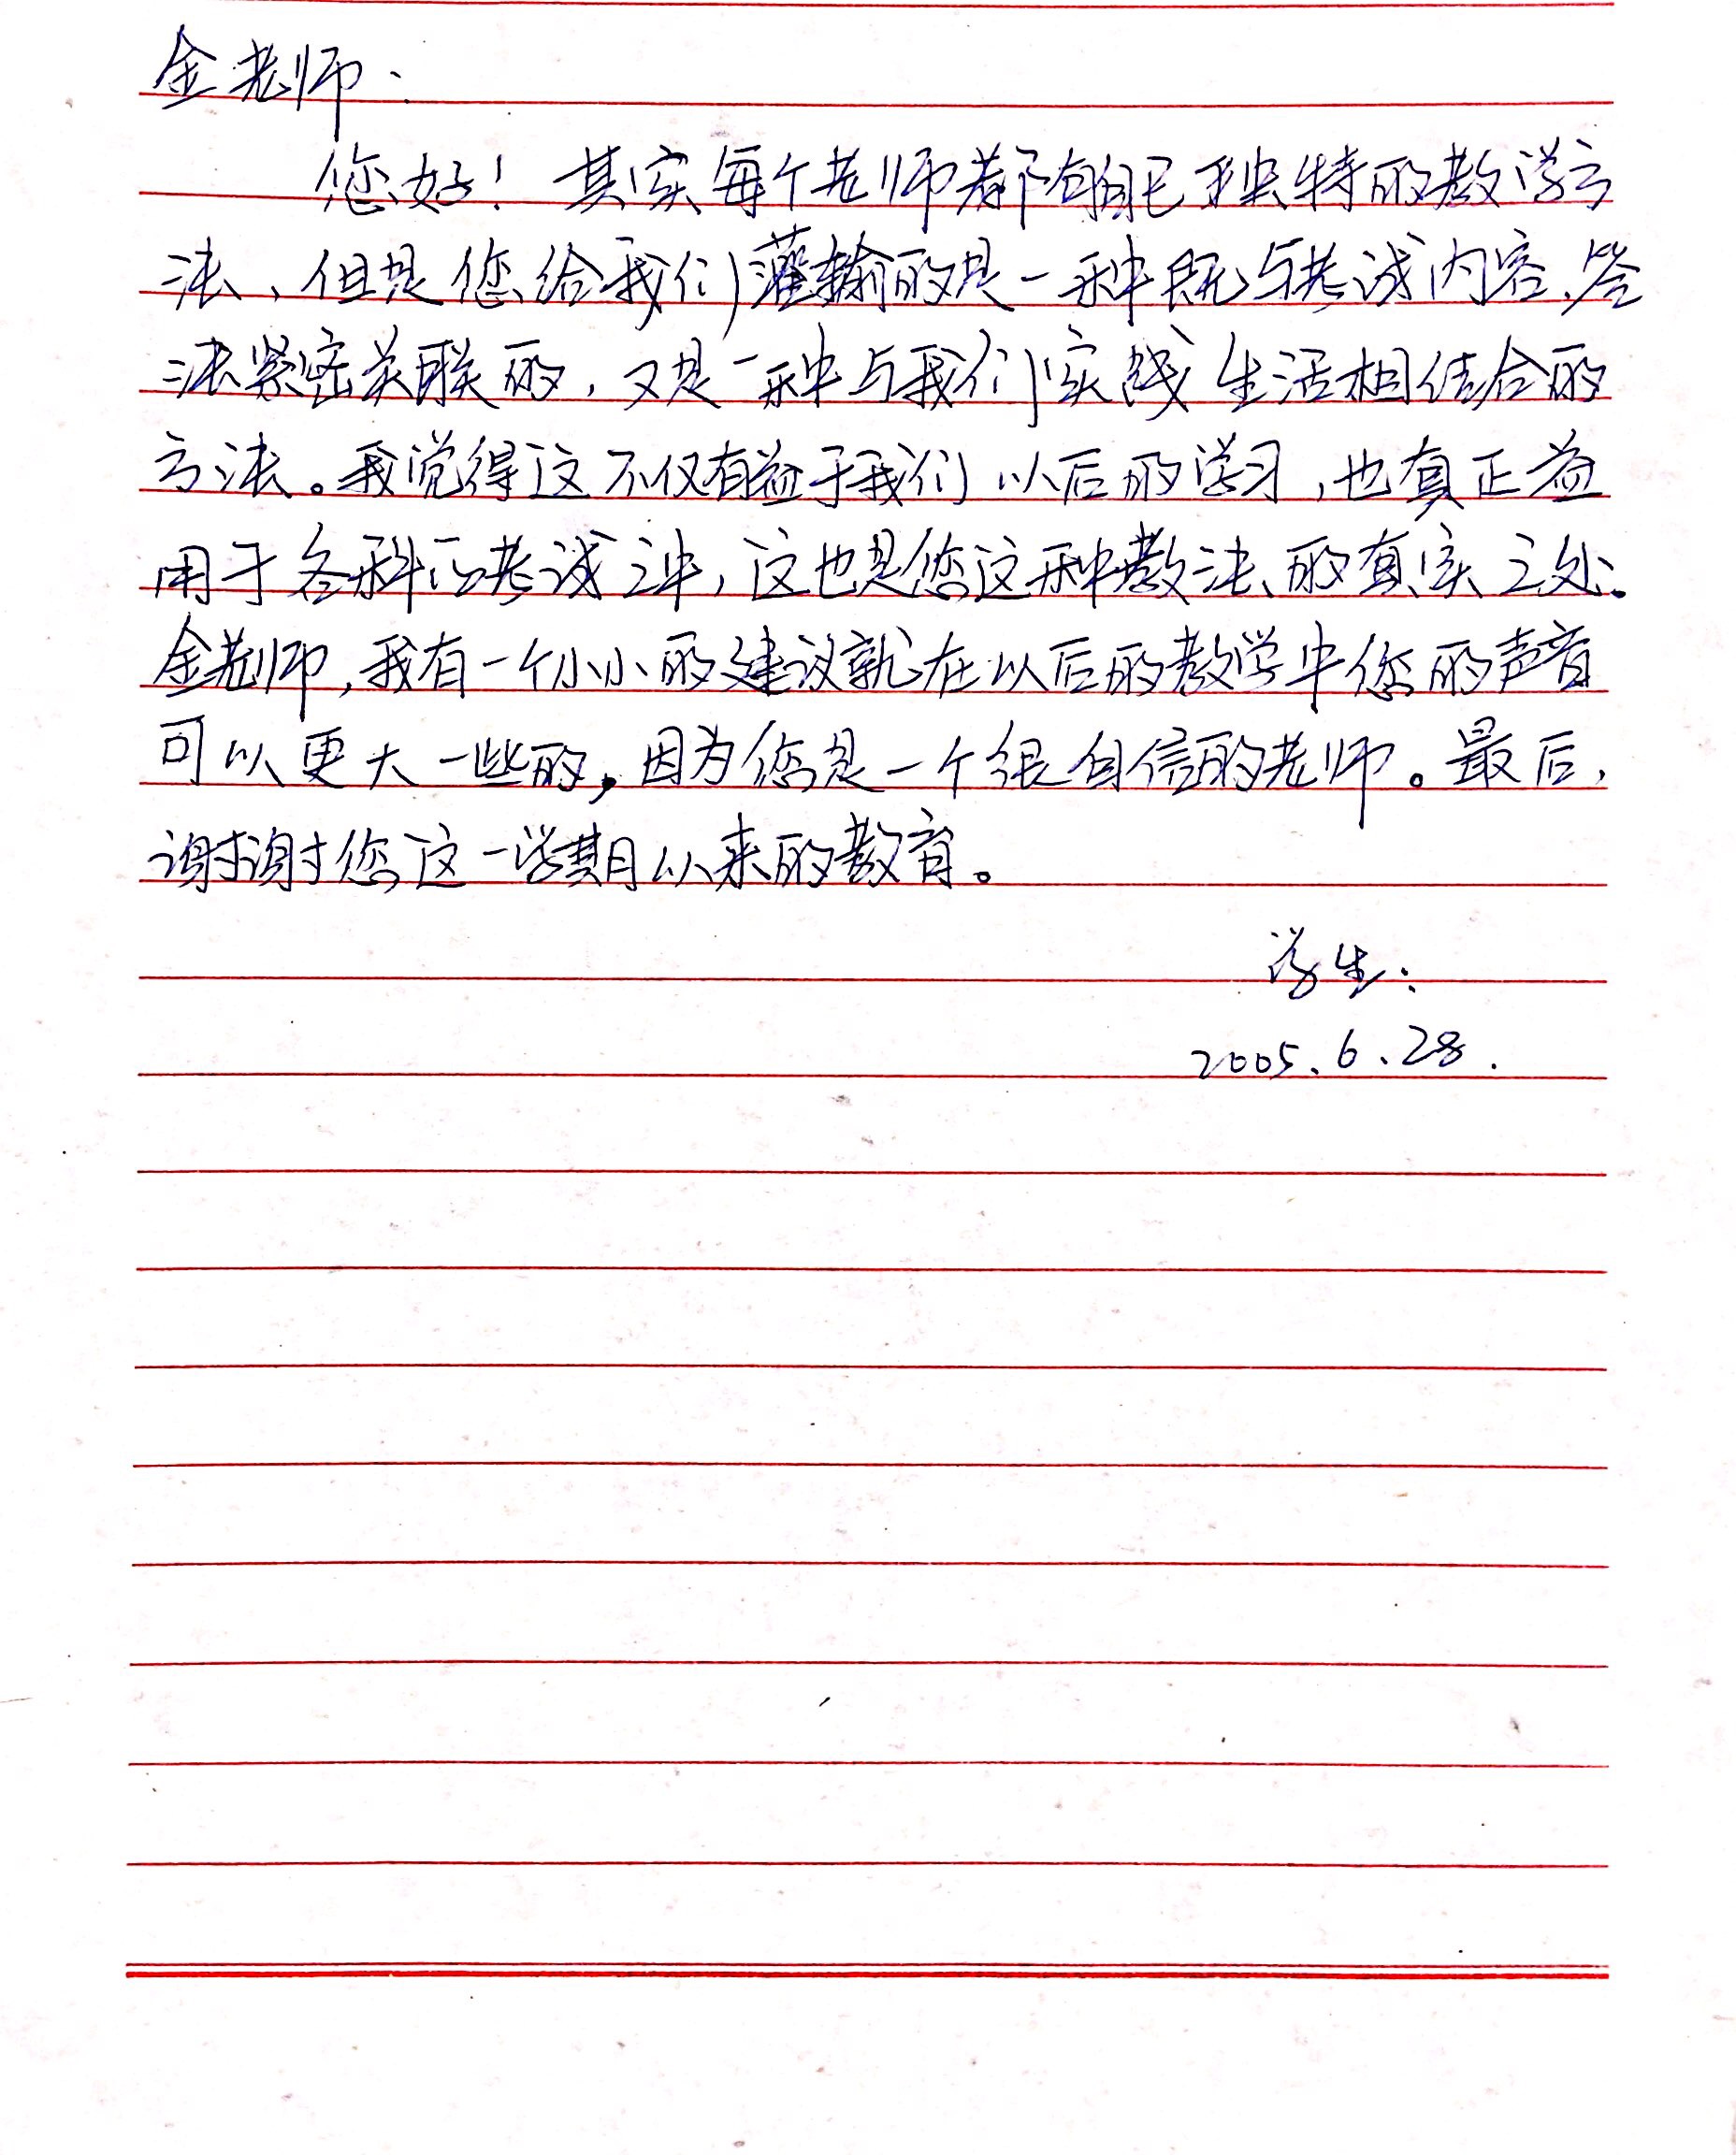 金老师：
您好！其实每个老师都有自己独特的教学方
法、但是您给我们灌输的是一种既与考试内容、答
法紧密关联的，又是一种与我们实践生活相结合的
方法。我觉得这不仅有益于我们以后的学习，也真正益
用于各科的考试之中，这也是您这种教法的真实之处。
金老师，我有一个小小的建议就在以后的教学中您的声音
可以更大一些的，因为您是一个很自信的老师。最后，
谢谢您这一学期以来的教育。
学生：
2005.6.28.